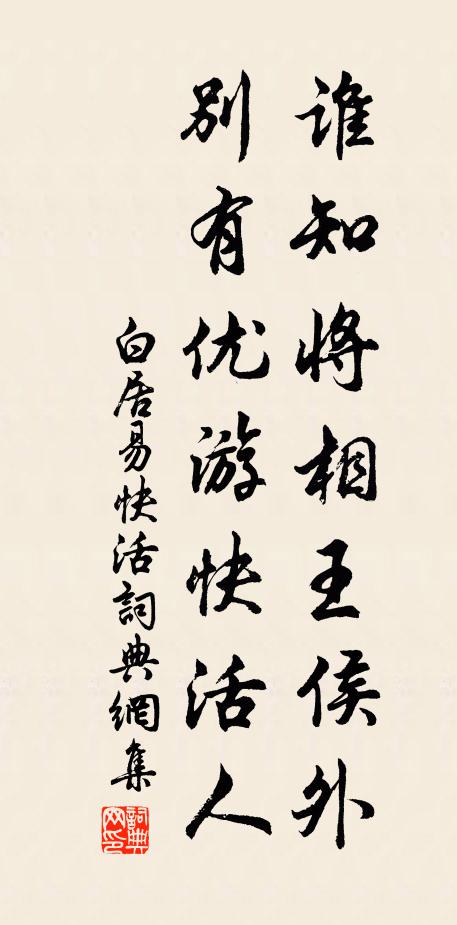 谁知将相王侯外
别有优游快活人
白居易快活詞典網集
詞典网印